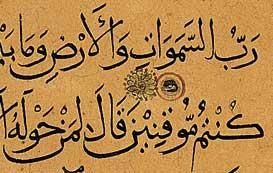 رَبُّ السَّمَوَاتِ وَالْأَرْضِ وَمَا
كُنْتُمْ مُوقِنِينَ قَالَ لِمَنْ حَوْلَهُ